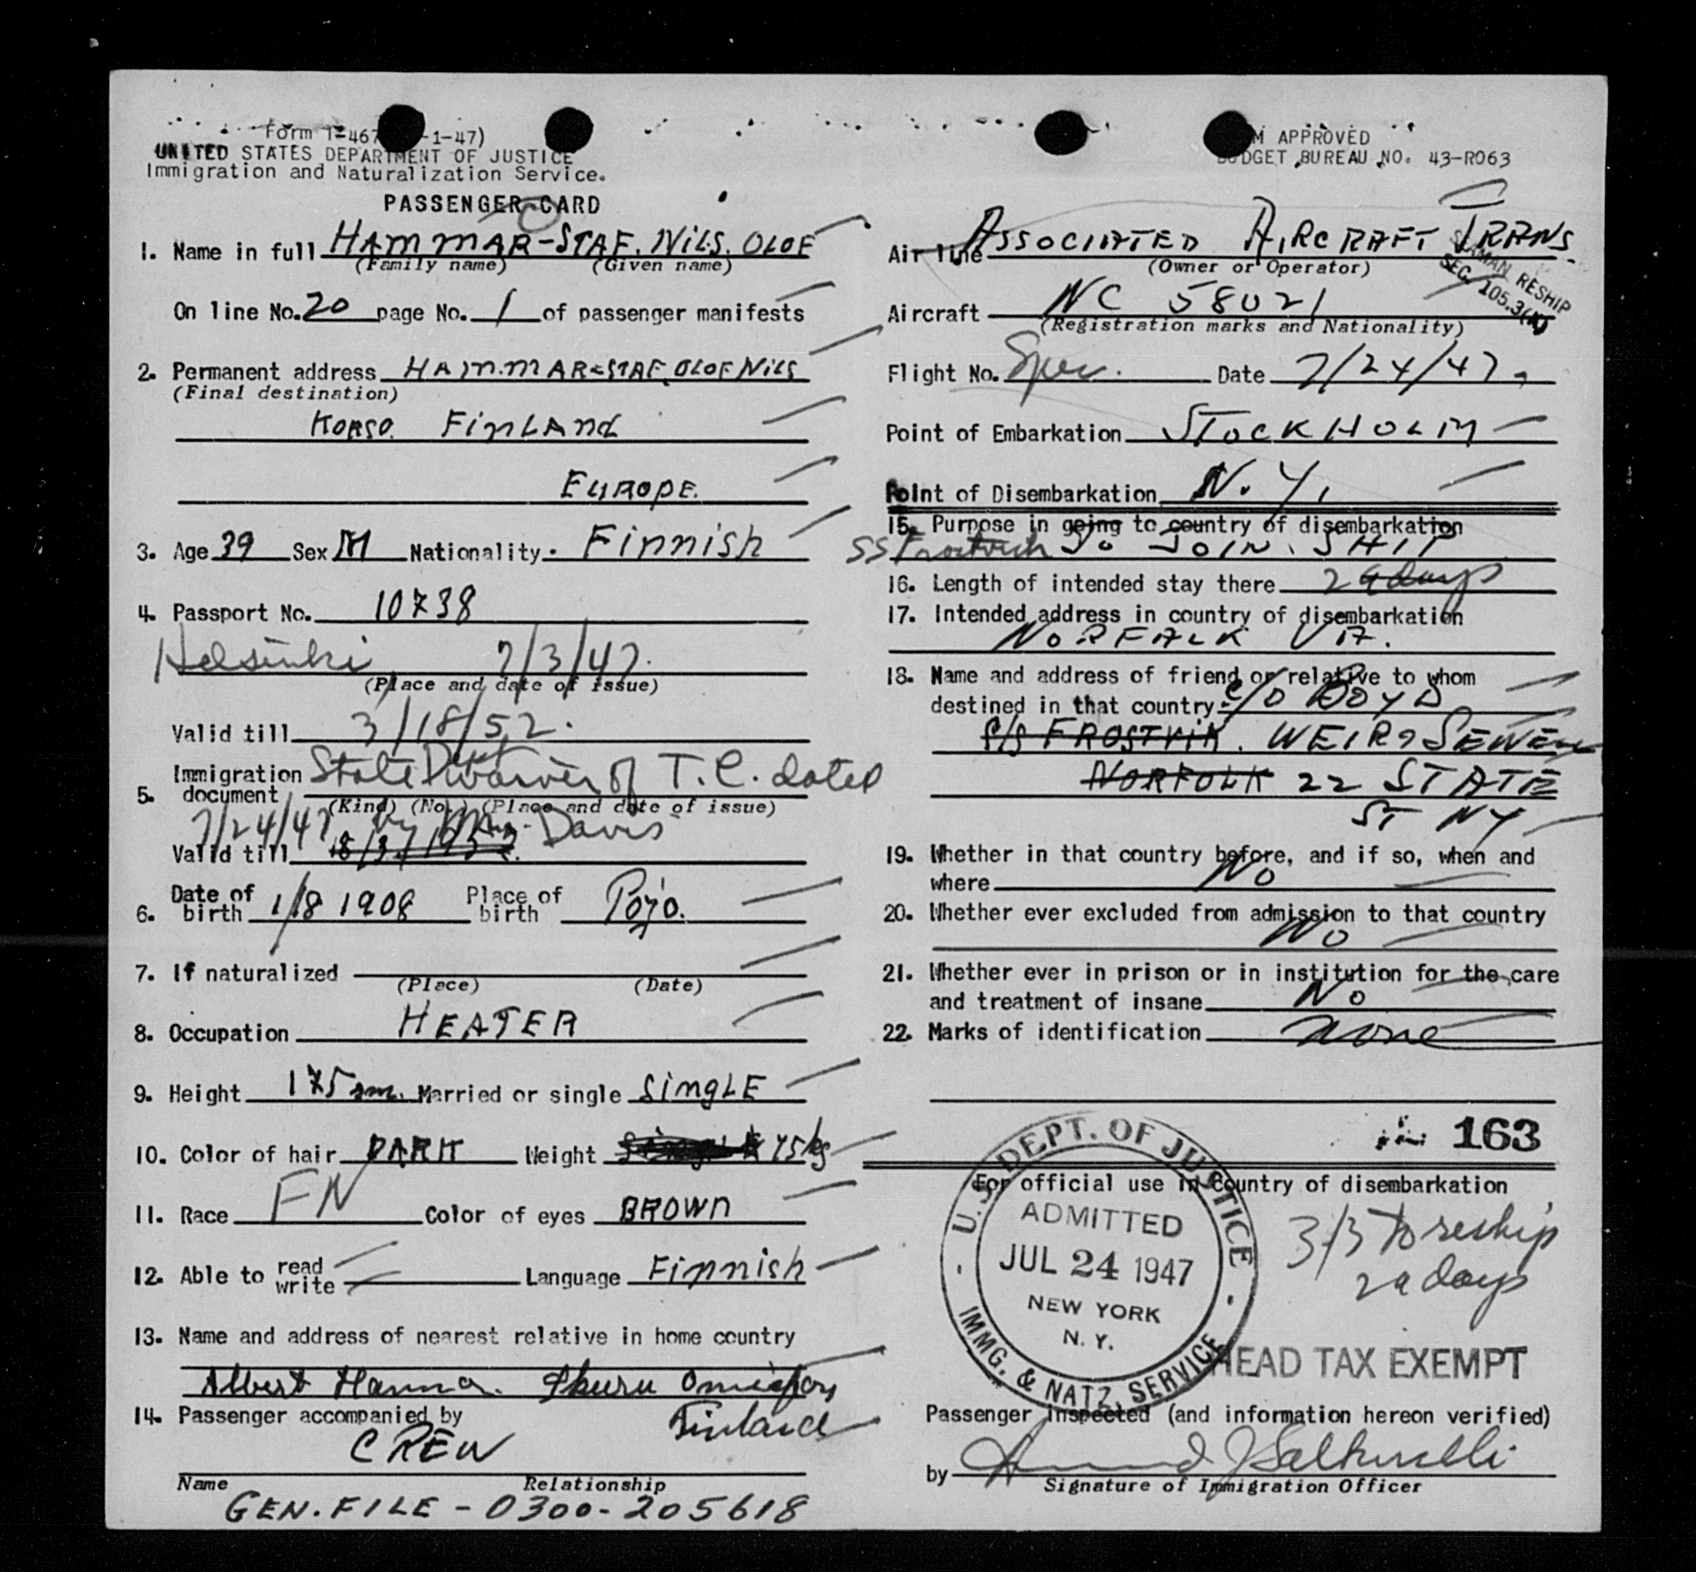 Form I-467 -1-47)
UNITED STATES DEPARTMENT OF JUSTICE
Immigration and Naturalization Service.
PASSENGER CARD
1. Name in full HAMMAR-STAF. NILS. OLOF
(Family name) (Given name)
On line No. 20 page No. 1 of passenger manifests
2. Permanent address HAMMAR-STAF. OLOF NILS
(Final destination)
KORSO. FINLAND
EUROPE.
3. Age 39 Sex M Nationality. Finnish
4. Passport No. 10738
Helsinki 7/3/47.
(Place and date of issue)
Valid till 3/18/52.
5. Immigration document State Dept waiver of T.C. dated
(Kind) (No.) (Place and date of issue)
7/24/47 by Davis
Valid till
6. Date of birth 1/8 1908 Place of birth Pojo.
7. If naturalized
(Place) (Date)
8. Occupation HEATER
9. Height 175 sm. Married or single SINGLE
10. Color of hair DARK Weight 75 kg
11. Race FN Color of eyes BROWN
12. Able to read write Language Finnish
13. Name and address of nearest relative in home country
Albert Hanna.
Finland
14. Passenger accompanied by
CREW
Name Relationship
GEN. FILE - 0300-205618
M APPROVED
BUDGET BUREAU NO. 43-R063
Air line ASSOCIATED AIRCRAFT TRANS.
(Owner or Operator)
SEAMAN RESHIP
SEC. 105.3(A)
Aircraft NC 58021
(Registration marks and Nationality)
Flight No. Spec. Date 7/24/47.
Point of Embarkation STOCKHOLM
Point of Disembarkation N.Y.
15. Purpose in going to country of disembarkation
SS Frostvik TO JOIN. SHIP
16. Length of intended stay there 29 days
17. Intended address in country of disembarkation
NORFALK VA.
18. Name and address of friend or relative to whom
destined in that country C/O BOYD
S/S FROSTVIK. WEIR & SEWELL
NORFOLK 22 STATE
ST NY
19. Whether in that country before, and if so, when and
where NO
20. Whether ever excluded from admission to that country
NO
21. Whether ever in prison or in institution for the care
and treatment of insane NO
22. Marks of identification none
163
For official use in Country of disembarkation
U.S. DEPT. OF JUSTICE
ADMITTED
JUL 24 1947
NEW YORK
N. Y.
IMMG. & NATZ. SERVICE
3/3 to reship
29 days
HEAD TAX EXEMPT
Passenger Inspected (and information hereon verified)
by
Signature of Immigration Officer